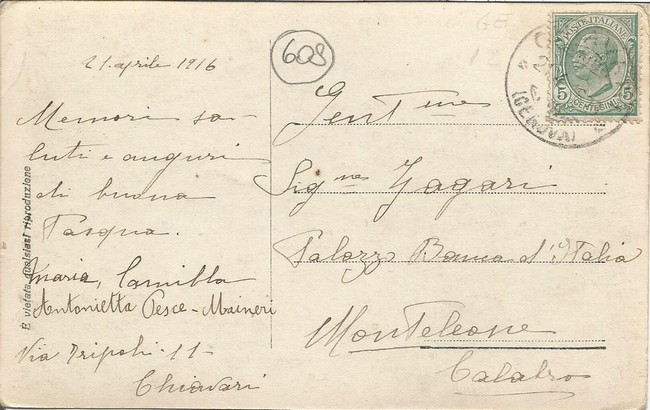 21 aprile 1916
Memori sa-
luti e auguri
di buona
Pasqua.
Maria, Camilla
Antonietta Pesce-Maineri
Via Tripoli-11-
Chiavari
608
Gent.me
Sig.nes Zagari
Palazzo Banca d'Italia
Monteleone
Calabro
POSTE ITALIANE
5 5
CENTESIMI
(GENOVA)
È vietata qualsiasi riproduzione